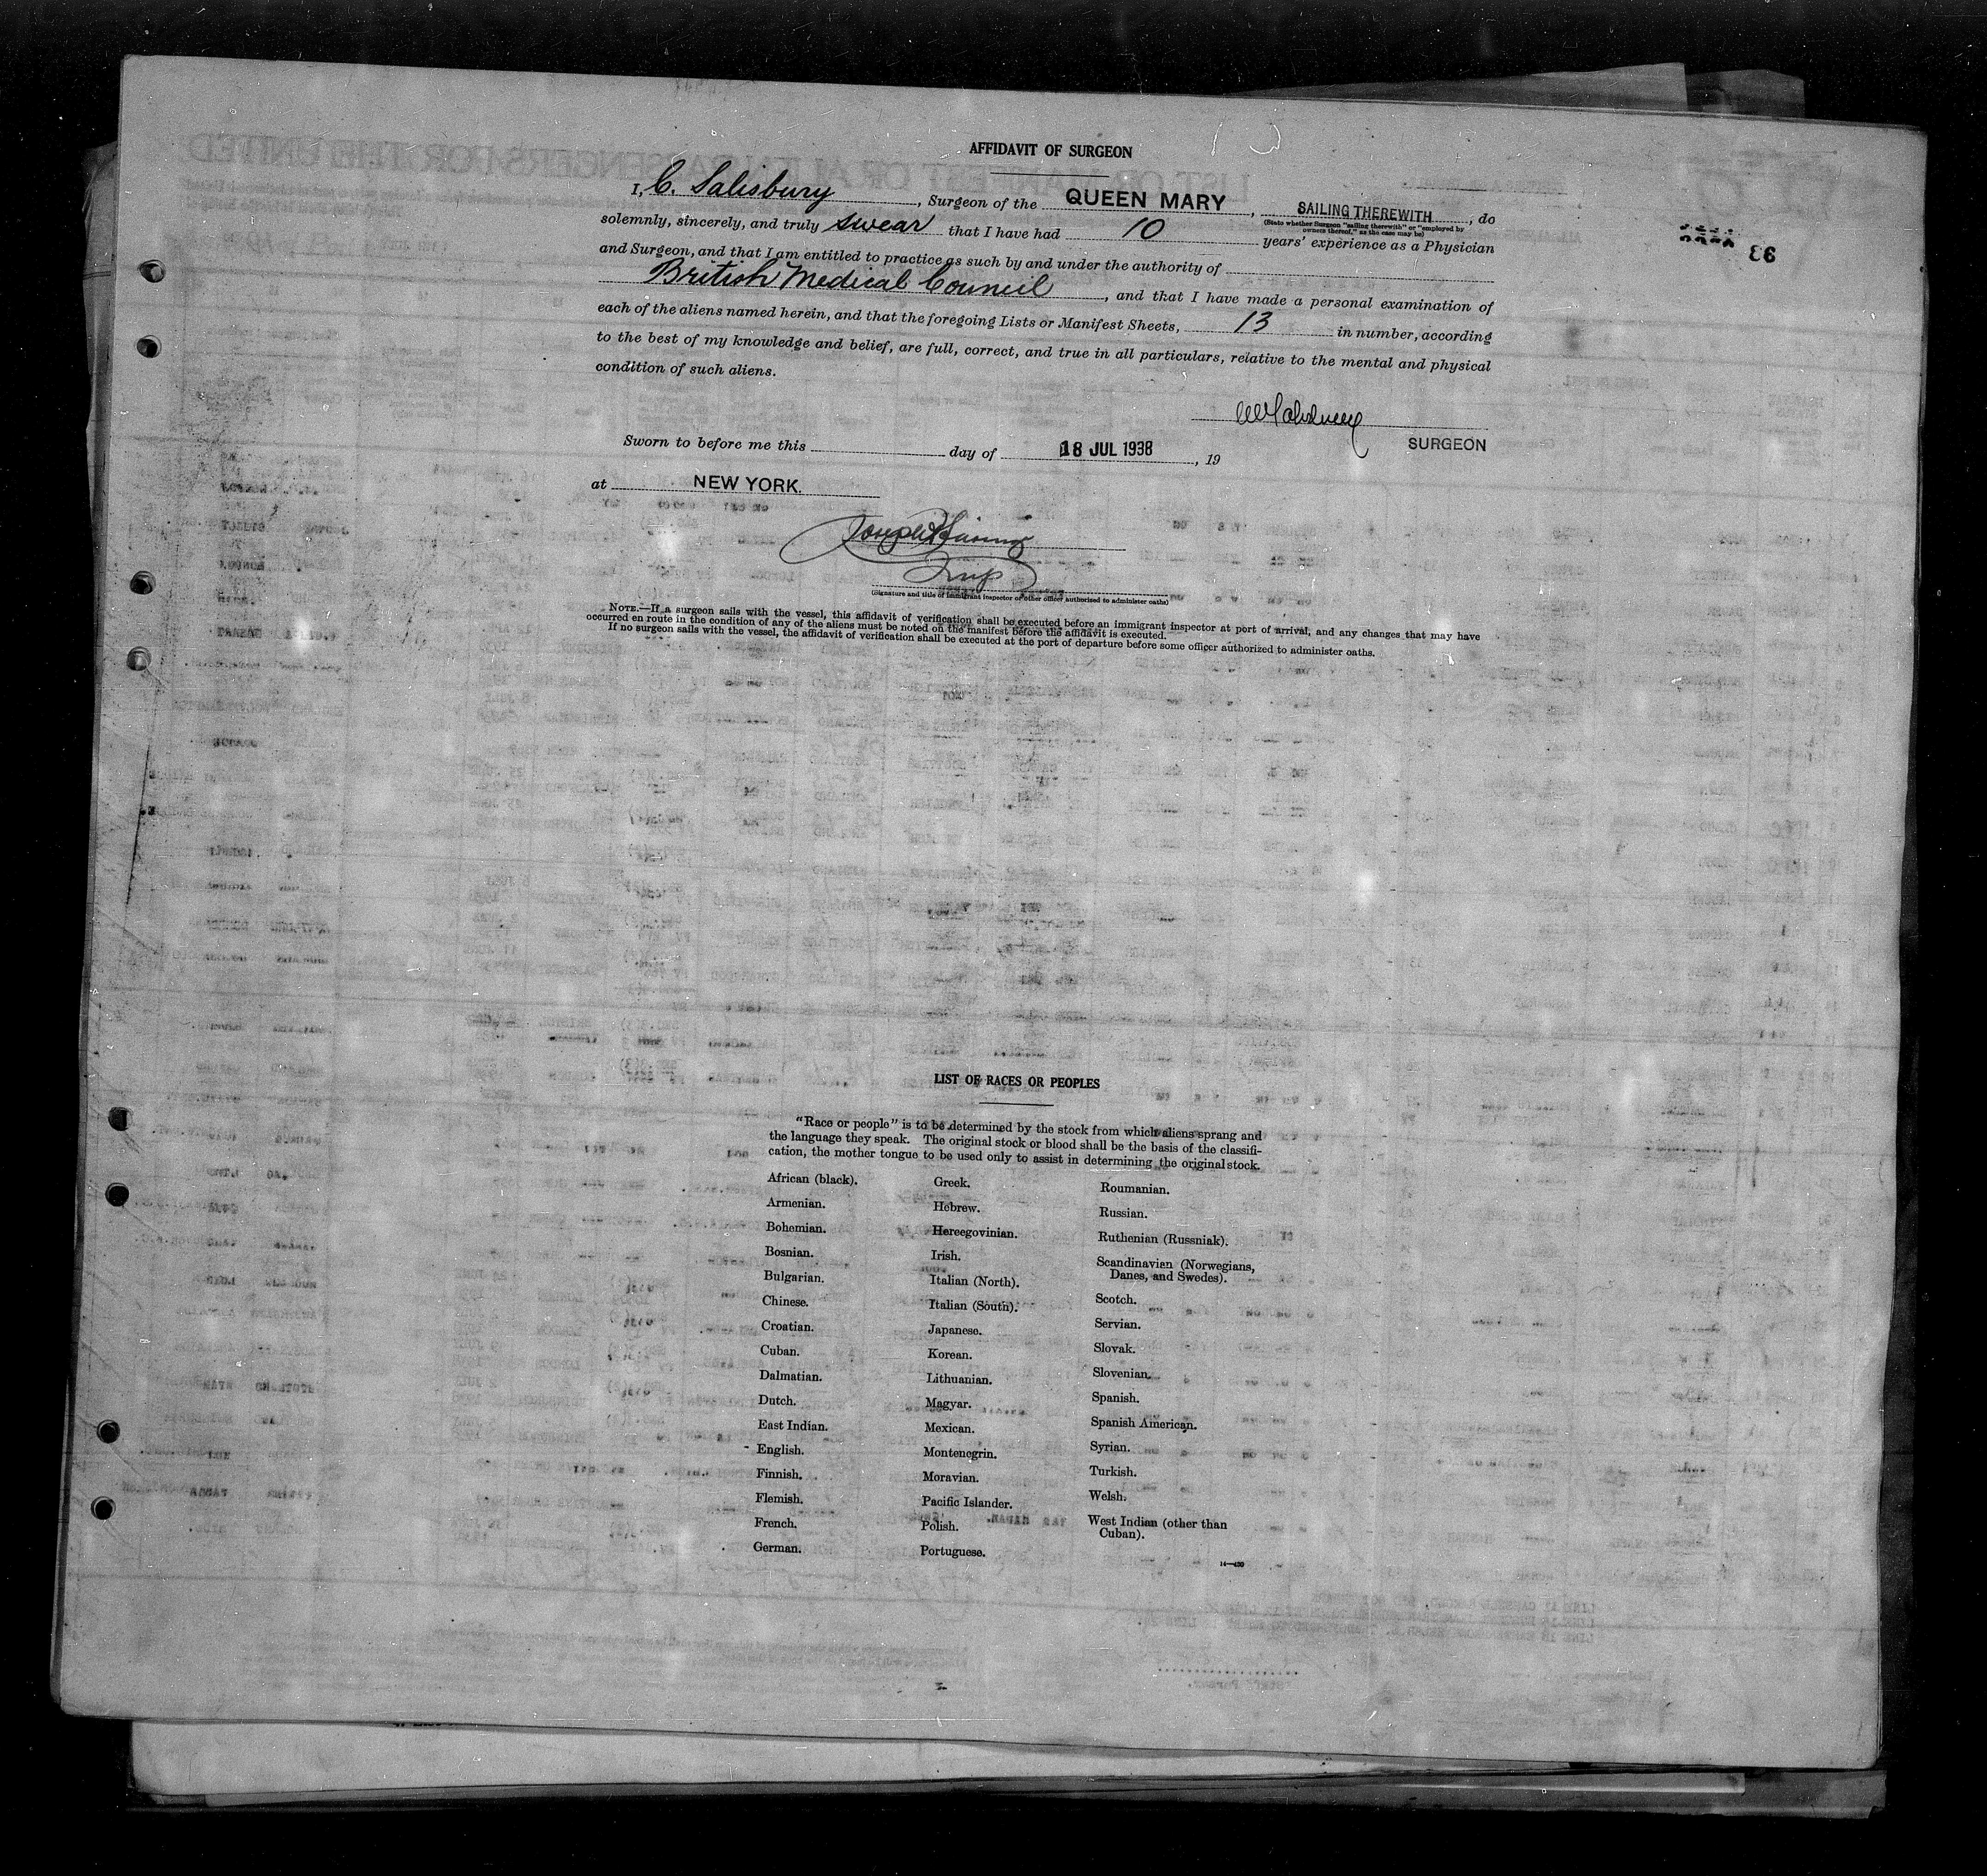 AFFIDAVIT OF SURGEON
I, C. Salisbury, Surgeon of the QUEEN MARY, SAILING THEREWITH, do
(State whether Surgeon "sailing therewith" or "employed by
owners thereof," as the case may be)
solemnly, sincerely, and truly swear that I have had 10 years' experience as a Physician
and Surgeon, and that I am entitled to practice as such by and under the authority of
British Medical Council, and that I have made a personal examination of
each of the aliens named herein, and that the foregoing Lists or Manifest Sheets, 13 in number, according
to the best of my knowledge and belief, are full, correct, and true in all particulars, relative to the mental and physical
condition of such aliens.
SURGEON
Sworn to before me this day of 18 JUL 1938, 19
at NEW YORK.
(Signature and title of immigrant inspector or other officer authorized to administer oaths)
NOTE.—If a surgeon sails with the vessel, this affidavit of verification shall be executed before an immigrant inspector at port of arrival, and any changes that may have
occurred en route in the condition of any of the aliens must be noted on the manifest before the affidavit is executed.
If no surgeon sails with the vessel, the affidavit of verification shall be executed at the port of departure before some officer authorized to administer oaths.
LIST OF RACES OR PEOPLES
"Race or people" is to be determined by the stock from which aliens sprang and
the language they speak. The original stock or blood shall be the basis of the classifi-
cation, the mother tongue to be used only to assist in determining the original stock.
African (black).
Armenian.
Bohemian.
Bosnian.
Bulgarian.
Chinese.
Croatian.
Cuban.
Dalmatian.
Dutch.
East Indian.
English.
Finnish.
Flemish.
French.
German.
Greek.
Hebrew.
Hercegovinian.
Irish.
Italian (North).
Italian (South).
Japanese.
Korean.
Lithuanian.
Magyar.
Mexican.
Montenegrin.
Moravian.
Pacific Islander.
Polish.
Portuguese.
Roumanian.
Russian.
Ruthenian (Russniak).
Scandinavian (Norwegians,
Danes, and Swedes).
Scotch.
Servian.
Slovak.
Slovenian.
Spanish.
Spanish American.
Syrian.
Turkish.
Welsh.
West Indian (other than
Cuban).
14—430